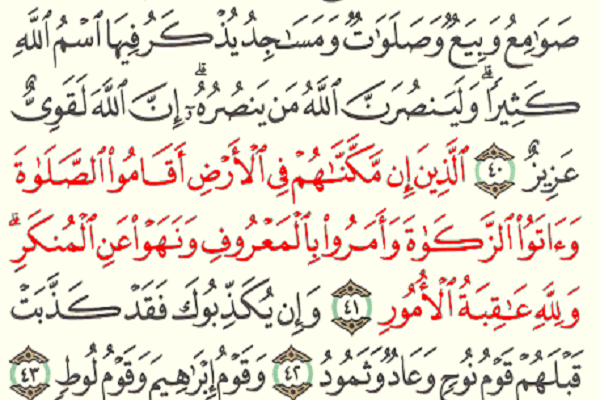 صَوَٰمِعُ وَبِيَعٌ وَصَلَوَٰتٌ وَمَسَـٰجِدُ يُذْكَرُ فِيهَا ٱسْمُ ٱللَّهِ
كَثِيرًا ۗ وَلَيَنصُرَنَّ ٱللَّهُ مَن يَنصُرُهُۥٓ ۗ إِنَّ ٱللَّهَ لَقَوِىٌّ
عَزِيزٌ ٤٠ ٱلَّذِينَ إِن مَّكَّنَّـٰهُمْ فِى ٱلْأَرْضِ أَقَامُوا۟ ٱلصَّلَوٰةَ
وَءَاتَوُا۟ ٱلزَّكَوٰةَ وَأَمَرُوا۟ بِٱلْمَعْرُوفِ وَنَهَوْا۟ عَنِ ٱلْمُنكَرِ ۗ
وَلِلَّهِ عَـٰقِبَةُ ٱلْأُمُورِ ٤١ وَإِن يُكَذِّبُوكَ فَقَدْ كَذَّبَتْ
قَبْلَهُمْ قَوْمُ نُوحٍ وَعَادٌ وَثَمُودُ ٤٢ وَقَوْمُ إِبْرَٰهِيمَ وَقَوْمُ لُوطٍ ٤٣